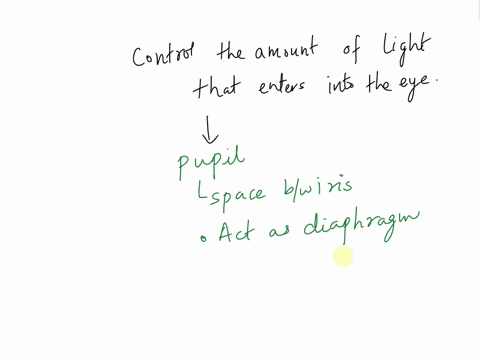 Control the amount of light
that enters into the eye.
pupil
space b/w iris
• Act as diaphragm